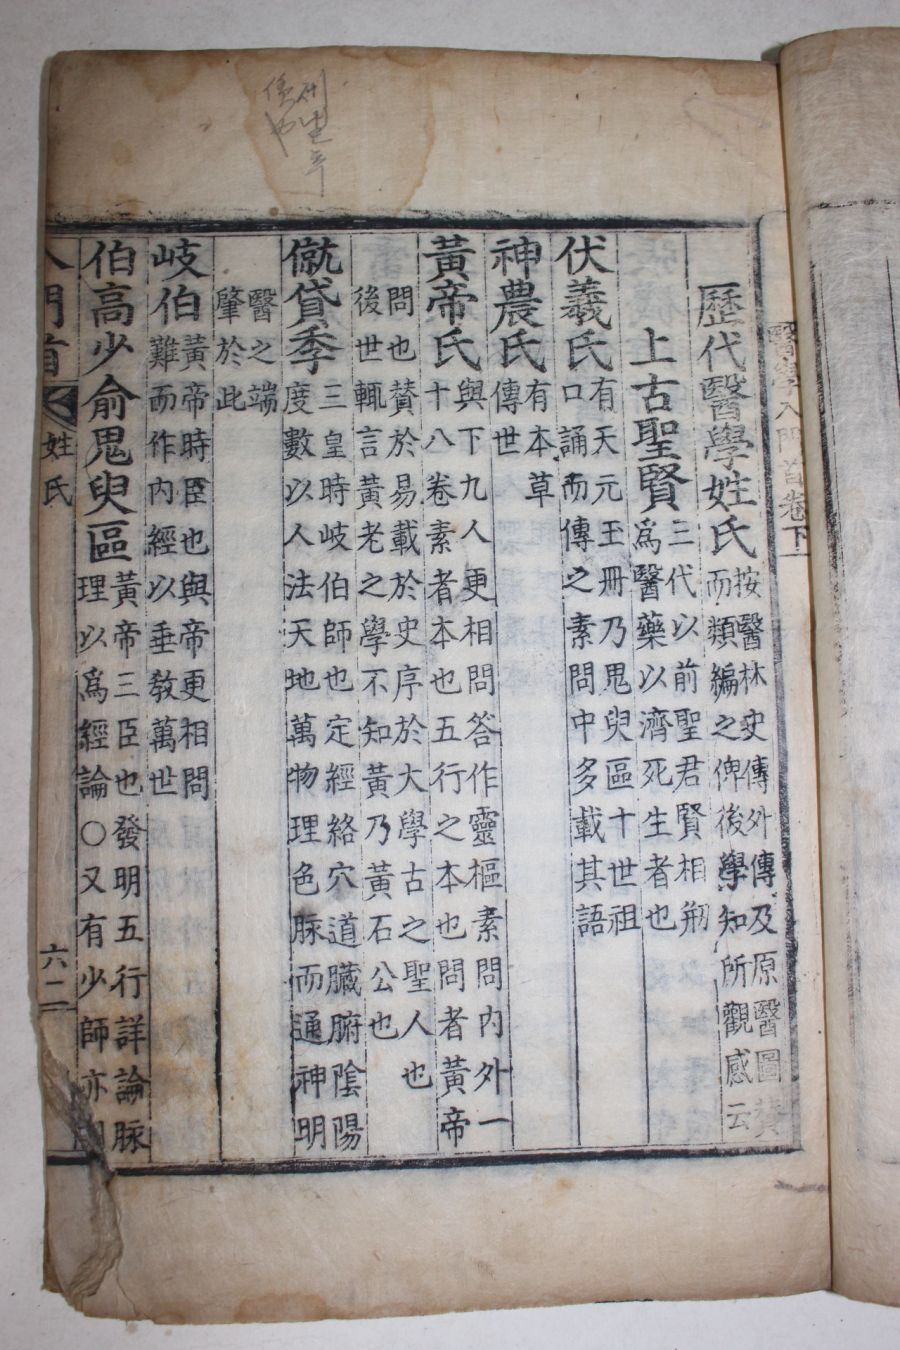 醫學入門首卷下
歷代醫學姓氏
按醫林史傳外傳及原醫圖贊
而類編之俾後學知所觀感云
上古聖賢
三代以前聖君賢相剏
爲醫藥以濟死生者也
伏羲氏
有天元玉冊乃鬼臾區十世祖
口誦而傳之素問中多載其語
神農氏
有本草
傳世
黃帝氏
與下九人更相問答作靈樞素問內外一
十八卷素者本也五行之本也問者黃帝
問也贊於易載於史序於大學古之聖人也
後世輒言黃老之學不知黃乃黃石公也
僦貸季
三皇時岐伯師也定經絡穴道臟腑陰陽
度數以人法天地萬物理色脉而通神明
醫之端
肇於此
岐伯
黃帝時臣也與帝更相問
難而作內經以垂敎萬世
伯高少俞鬼臾區
黃帝三臣也發明五行詳論脉
理以爲經論○又有少師亦
入門首
姓氏
六二